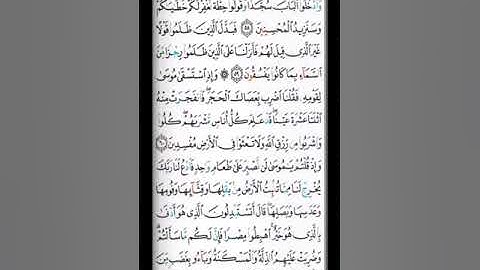 وَادْخُلُوا الْبَابَ سُجَّدًا وَقُولُوا حِطَّةٌ نَغْفِرْ لَكُمْ خَطَايَاكُمْ
وَسَنَزِيدُ الْمُحْسِنِينَ ٥٨ فَبَدَّلَ الَّذِينَ ظَلَمُوا قَوْلًا
غَيْرَ الَّذِي قِيلَ لَهُمْ فَأَنْزَلْنَا عَلَى الَّذِينَ ظَلَمُوا رِجْزًا مِنَ
السَّمَاءِ بِمَا كَانُوا يَفْسُقُونَ ٥٩ وَإِذِ اسْتَسْقَى مُوسَى
لِقَوْمِهِ فَقُلْنَا اضْرِبْ بِعَصَاكَ الْحَجَرَ فَانْفَجَرَتْ مِنْهُ
اثْنَتَا عَشْرَةَ عَيْنًا قَدْ عَلِمَ كُلُّ أُنَاسٍ مَشْرَبَهُمْ كُلُوا
وَاشْرَبُوا مِنْ رِزْقِ اللَّهِ وَلَا تَعْثَوْا فِي الْأَرْضِ مُفْسِدِينَ ٦٠
وَإِذْ قُلْتُمْ يَامُوسَى لَنْ نَصْبِرَ عَلَى طَعَامٍ وَاحِدٍ فَادْعُ لَنَا رَبَّكَ
يُخْرِجْ لَنَا مِمَّا تُنْبِتُ الْأَرْضُ مِنْ بَقْلِهَا وَقِثَّائِهَا وَفُومِهَا
وَعَدَسِهَا وَبَصَلِهَا قَالَ أَتَسْتَبْدِلُونَ الَّذِي هُوَ أَدْنَى
بِالَّذِي هُوَ خَيْرٌ اهْبِطُوا مِصْرًا فَإِنَّ لَكُمْ مَا سَأَلْتُمْ
وَضُرِبَتْ عَلَيْهِمُ الذِّلَّةُ وَالْمَسْكَنَةُ وَبَاءُوا بِغَضَبٍ مِنَ